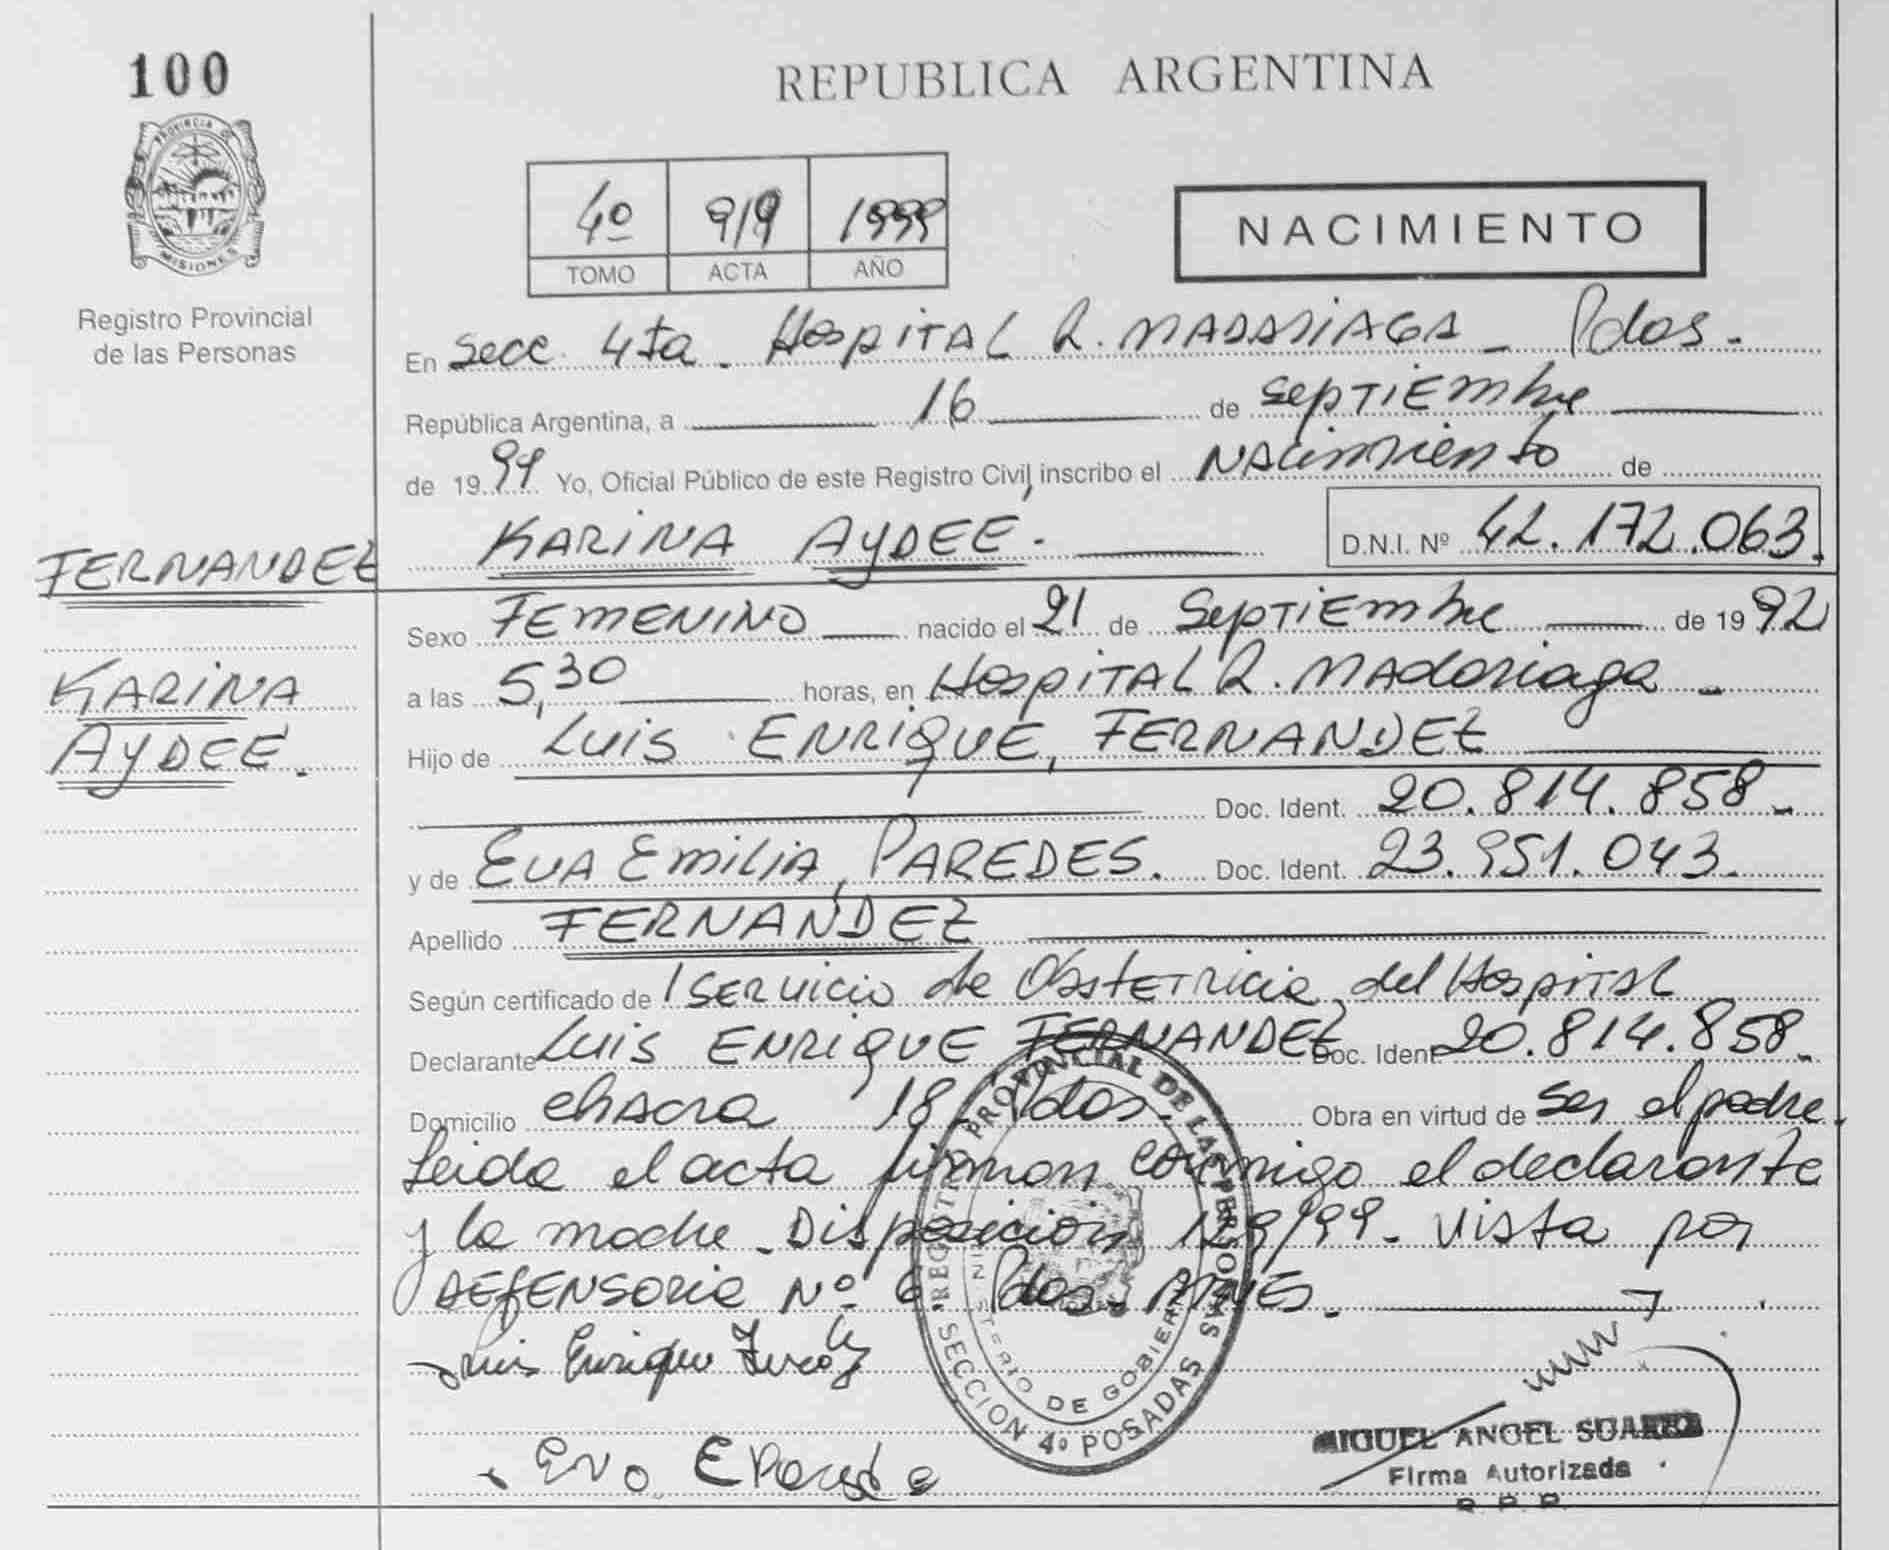 100
REPUBLICA ARGENTINA
PROVINCIA DE
MISIONES
Registro Provincial
de las Personas
4º 919 1999
TOMO ACTA AÑO
NACIMIENTO
En Secc. 4ta. Hospital R. MADARIAGA - Pdas.
República Argentina, a 16 de septiembre
de 1999 Yo, Oficial Público de este Registro Civil, inscribo el Nacimiento de
FERNANDEZ
KARINA AYDEE. D.N.I. Nº 42.172.063.
Sexo FEMENINO nacido el 21 de Septiembre de 1992
KARINA
a las 5,30 horas, en Hospital R. Madariaga -
AYDEE.
Hijo de Luis ENRIQUE, FERNANDEZ
Doc. Ident. 20.814.858.-
y de EVA EMILIA, PAREDES. Doc. Ident. 23.951.043.
Apellido FERNANDEZ
Según certificado de Servicio de Obstetricia, del Hospital
Declarante Luis ENRIQUE FERNANDEZ Doc. Ident 20.814.858.
Domicilio chacra 18 Pdas. Obra en virtud de ser el padre.
Leida el acta firman conmigo el declarante
y la madre. Disposición 129/99. Vista por
DEFENSORIA Nº 6 Pdas.
REGISTRO PROVINCIAL DE LAS PERSONAS
MINISTERIO DE GOBIERNO
SECCION 4º POSADAS
Luis Enrique
Eva E Paredes
MIGUEL ANGEL SUAREZ
Firma Autorizada
R. P. P.